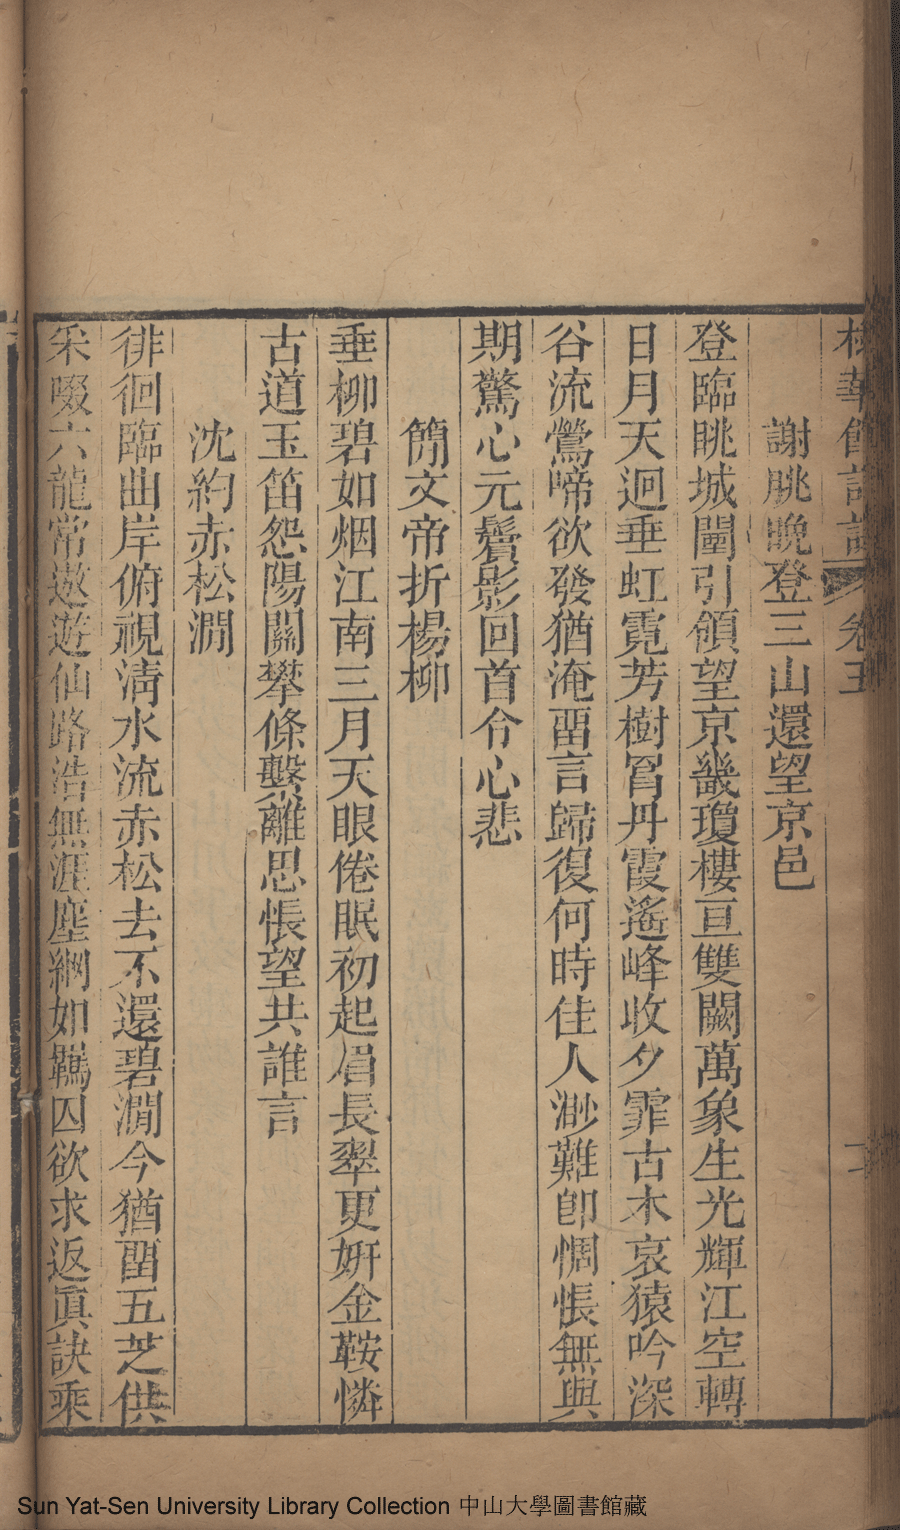 謝朓晚登三山還望京邑
登臨眺城闉引領望京畿瓊樓亘雙闕萬象生光輝江空轉
日月天迥垂虹霓芳樹罥丹霞遙峰收夕霏古木哀猿吟深
谷流鶯啼欲發猶淹畱言歸復何時佳人渺難卽惆悵無與
期驚心元鬢影回首令心悲
簡文帝折楊柳
垂柳碧如烟江南三月天眼倦眠初起眉長翠更姸金鞍憐
古道玉笛怨陽關攀條繫離思悵望共誰言
沈約赤松澗
徘徊臨曲岸俯視淸水流赤松去不還碧澗今猶畱五芝供
采啜六龍常遨遊仙路浩無涯塵網如羈囚欲求返眞訣乘
Sun Yat-Sen University Library Collection 中山大學圖書館藏